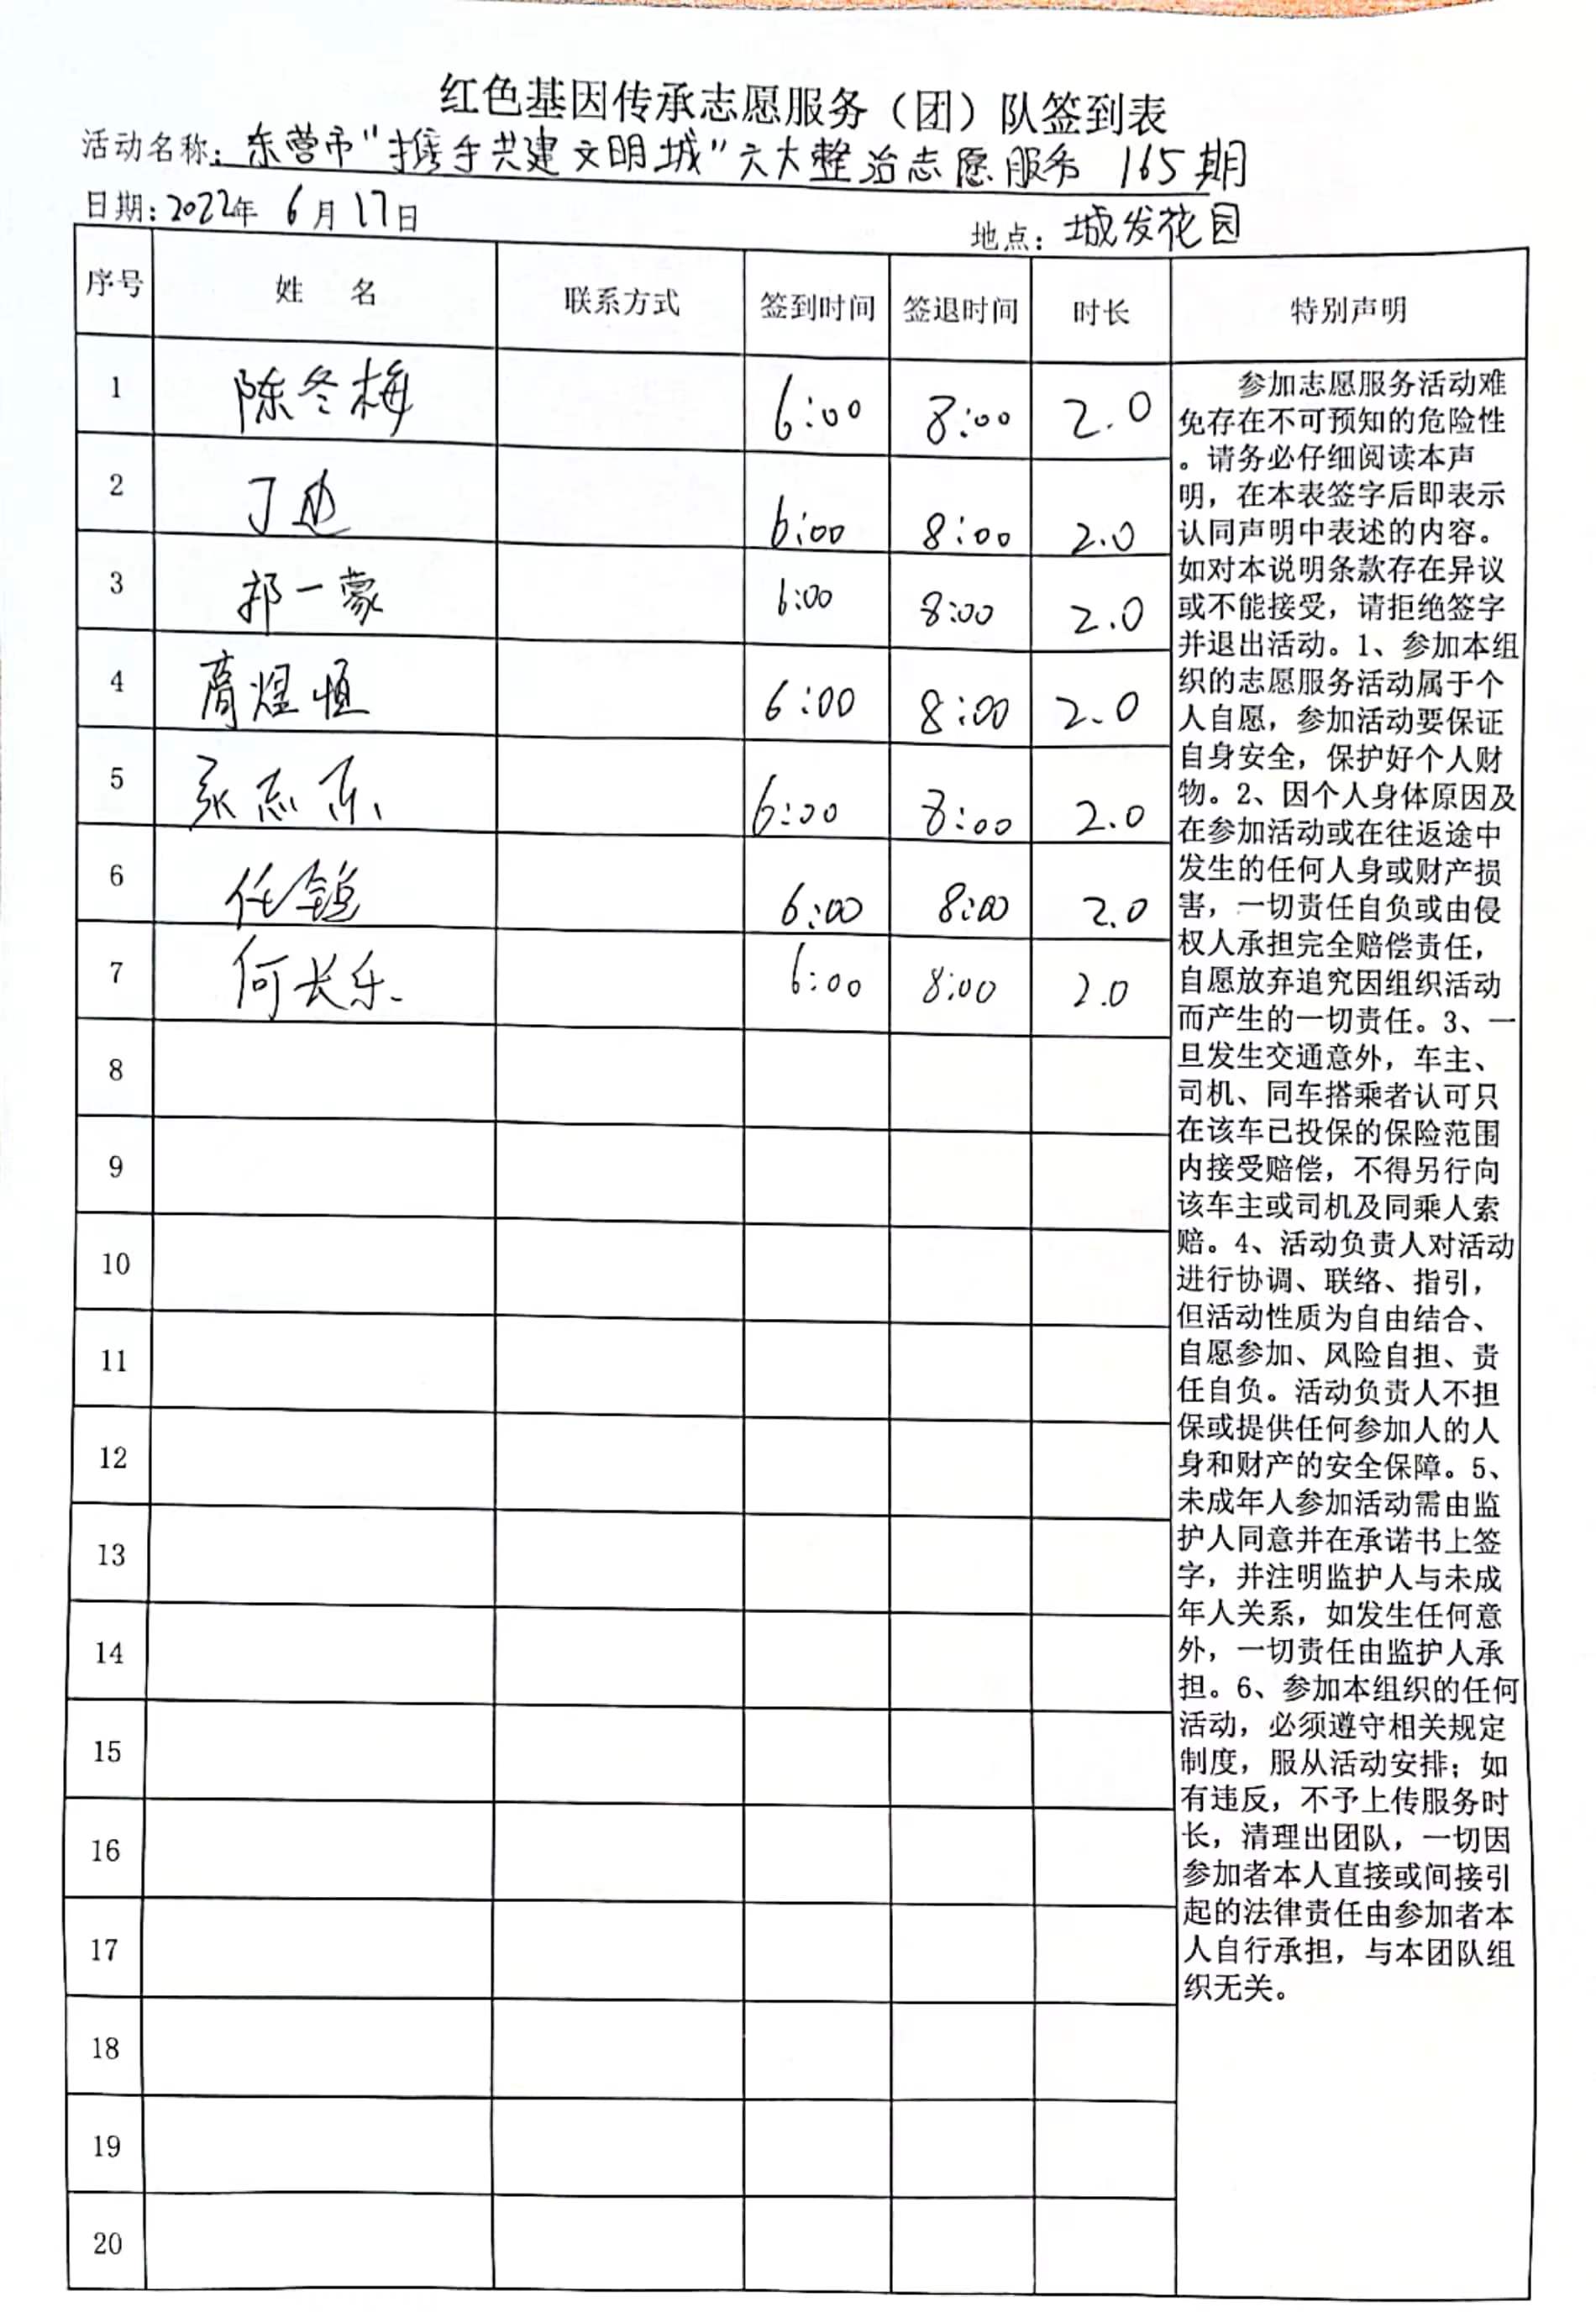 红色基因传承志愿服务（团）队签到表
活动名称：东营市"携手共建文明城"六大整治志愿服务 165期
日期：2022年 6月17日 地点：城发花园
序号 姓 名 联系方式 签到时间 签退时间 时长 特别声明
1 陈冬梅 6:00 8:00 2.0
2 丁 6:00 8:00 2.0
3 祁一蒙 6:00 8:00 2.0
4 煜恒 6:00 8:00 2.0
5 张志 6:00 8:00 2.0
6 任 6:00 8:00 2.0
7 何长乐 6:00 8:00 2.0
8
9
10
11
12
13
14
15
16
17
18
19
20
参加志愿服务活动难
免存在不可预知的危险性
。请务必仔细阅读本声
明，在本表签字后即表示
认同声明中表述的内容。
如对本说明条款存在异议
或不能接受，请拒绝签字
并退出活动。1、参加本组
织的志愿服务活动属于个
人自愿，参加活动要保证
自身安全，保护好个人财
物。2、因个人身体原因及
在参加活动或在往返途中
发生的任何人身或财产损
害，一切责任自负或由侵
权人承担完全赔偿责任，
自愿放弃追究因组织活动
而产生的一切责任。3、一
旦发生交通意外，车主、
司机、同车搭乘者认可只
在该车已投保的保险范围
内接受赔偿，不得另行向
该车主或司机及同乘人索
赔。4、活动负责人对活动
进行协调、联络、指引，
但活动性质为自由结合、
自愿参加、风险自担、责
任自负。活动负责人不担
保或提供任何参加人的人
身和财产的安全保障。5、
未成年人参加活动需由监
护人同意并在承诺书上签
字，并注明监护人与未成
年人关系，如发生任何意
外，一切责任由监护人承
担。6、参加本组织的任何
活动，必须遵守相关规定
制度，服从活动安排；如
有违反，不予上传服务时
长，清理出团队，一切因
参加者本人直接或间接引
起的法律责任由参加者本
人自行承担，与本团队组
织无关。